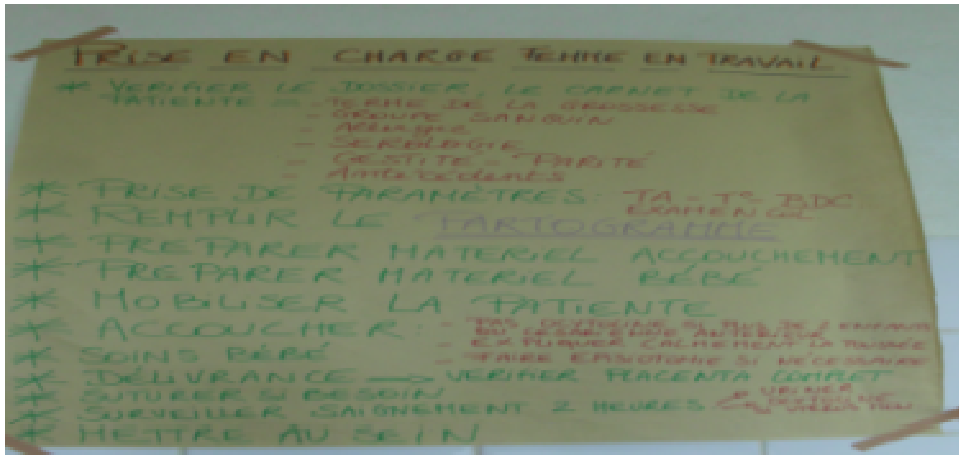 PRISE EN CHARGE FEMME EN TRAVAIL
* VERIFIER LE DOSSIER, LE CARNET DE LA
PATIENTE = - TERME DE LA GROSSESSE
- GROUPE SANGUIN
- Allergie
- SEROLOGIE
- GESTITE - PARITÉ
- Antécédents
* PRISE DE PARAMÈTRES: TA - T° BDC
EXAMEN COL
* REMPLIR LE PARTOGRAMME
* PREPARER MATERIEL ACCOUCHEMENT
* PREPARER MATERIEL BÉBÉ
* MOBILISER LA PATIENTE
* ACCOUCHER: - PAS OCYTOCINE SI PLUS DE ENFANTS
OU CESARIENNE ANTERIEURE
- EXPLIQUER CALMEMENT LA POUSSÉE
* SOINS BÉBÉ - FAIRE EPISIOTOMIE SI NÉCESSAIRE
* DÉLIVRANCE → VERIFIER PLACENTA COMPLET
* SUTURER SI BESOIN
* SURVEILLER SAIGNEMENT 2 HEURES URINER
OCYTOCINE
* METTRE AU SEIN